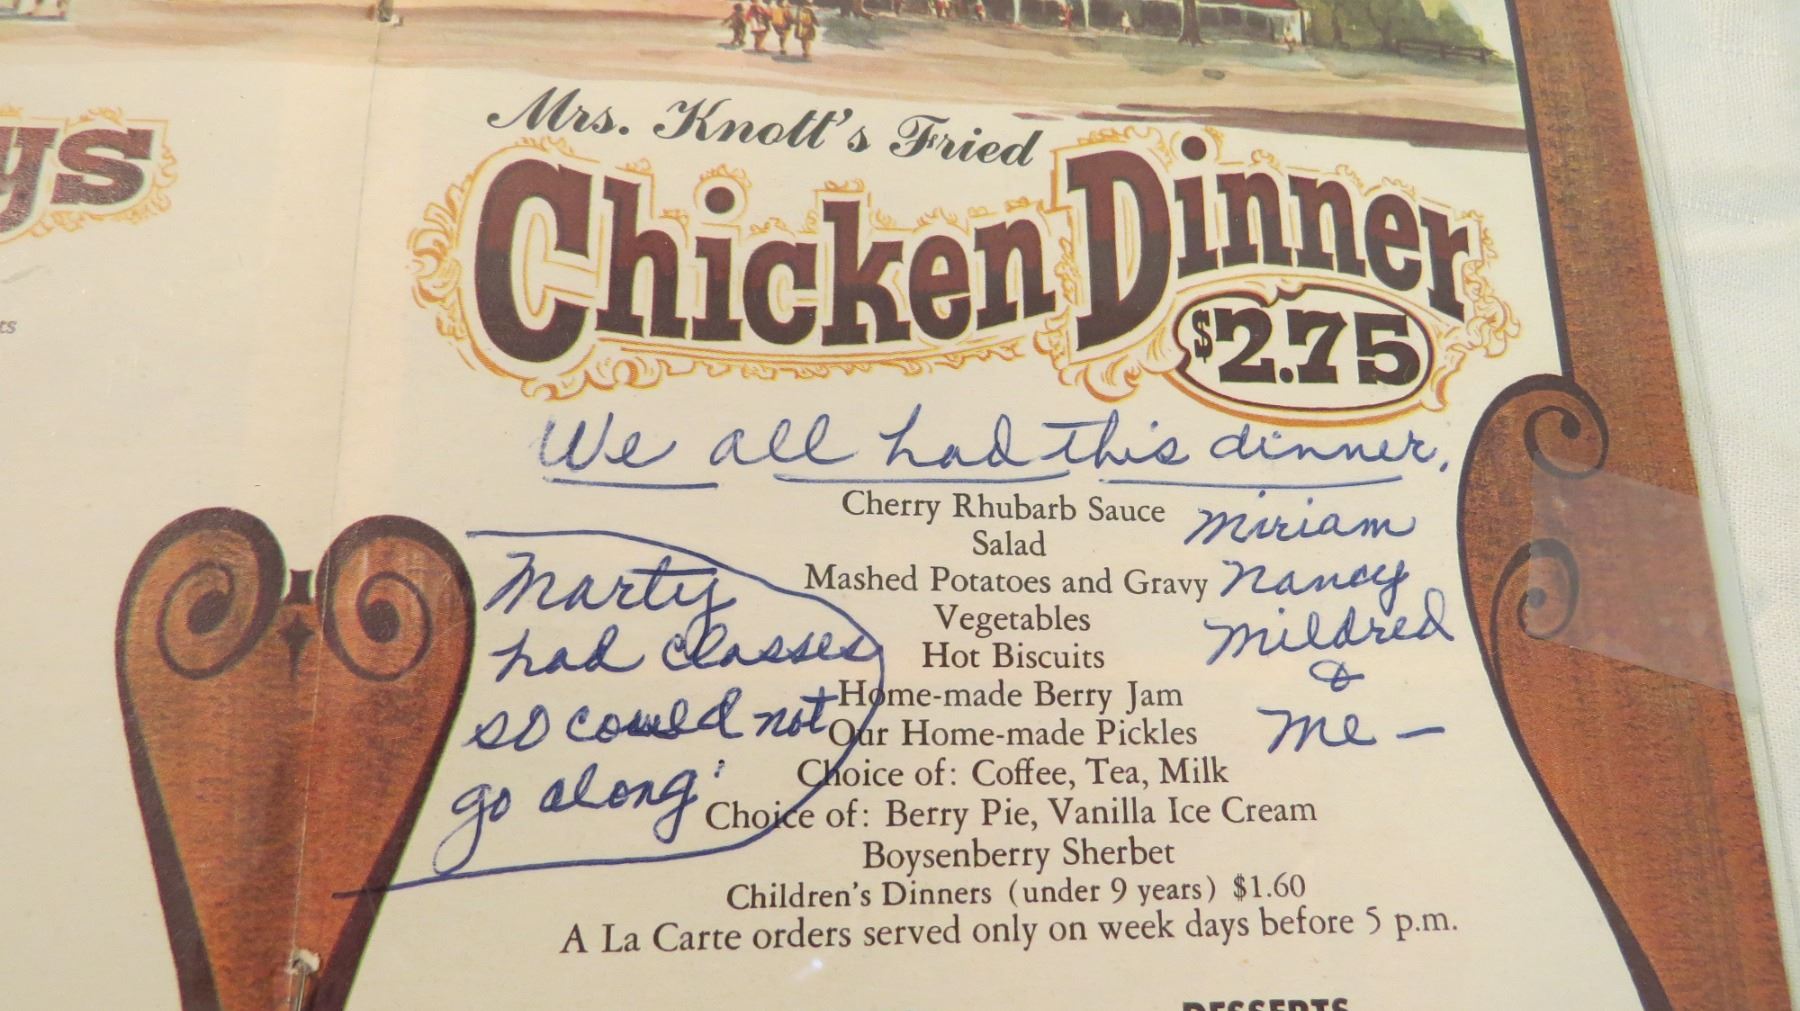 ys
ts
Mrs. Knott's Fried
Chicken Dinner
$2.75
We all had this dinner.
Cherry Rhubarb Sauce
Salad
Mashed Potatoes and Gravy
Vegetables
Hot Biscuits
Home-made Berry Jam
Our Home-made Pickles
Choice of: Coffee, Tea, Milk
Choice of: Berry Pie, Vanilla Ice Cream
Boysenberry Sherbet
Children's Dinners (under 9 years) $1.60
A La Carte orders served only on week days before 5 p.m.
Miriam
Nancy
Mildred
&
Me –
Marty
had classes
so could not
go along
DESSERTS